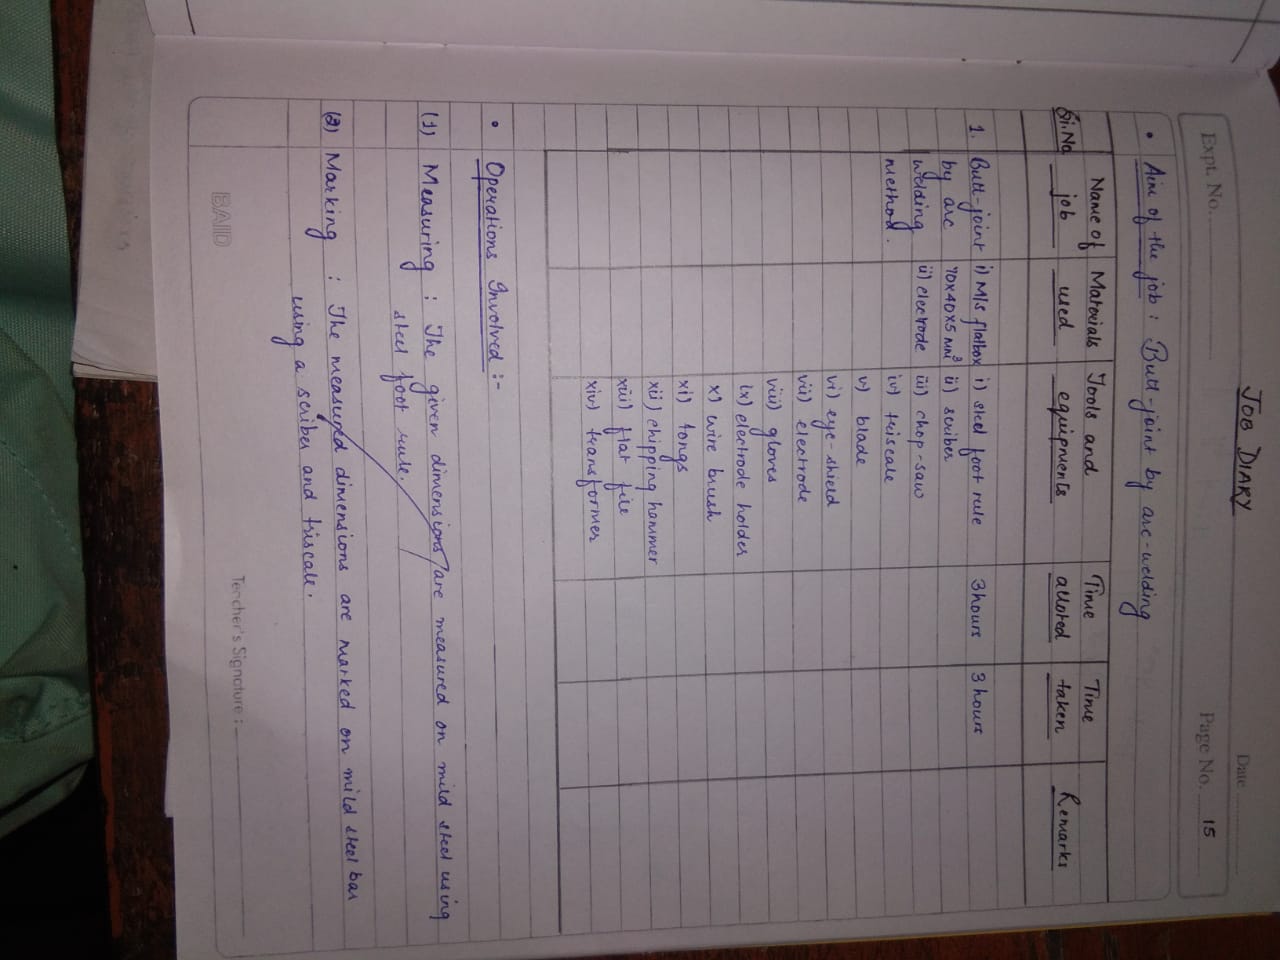 JOB DIARY
Date
Expt. No.
Page No. 15
• Aim of the job : Butt-joint by arc-welding
Sl.No
Name of job
Materials used
Tools and equipments
Time alloted
Time taken
Remarks
1.
Butt-joint
by arc
welding
method.
i) M/s flatbox
70x40x5 mm³
ii) electrode
i) steel foot rule
ii) scriber
iii) chop-saw
iv) triscale
v) blade
vi) eye-shield
vii) electrode
viii) gloves
ix) electrode holder
x) wire brush
xi) tongs
xii) chipping hammer
xiii) flat file
xiv) transformer
3 hours
3 hours
• Operations Involved :-
(1) Measuring : The given dimensions are measured on mild steel using
steel foot rule.
(2) Marking : The measured dimensions are marked on mild steel bar
using a scriber and triscale.
BAID
Teacher's Signature :